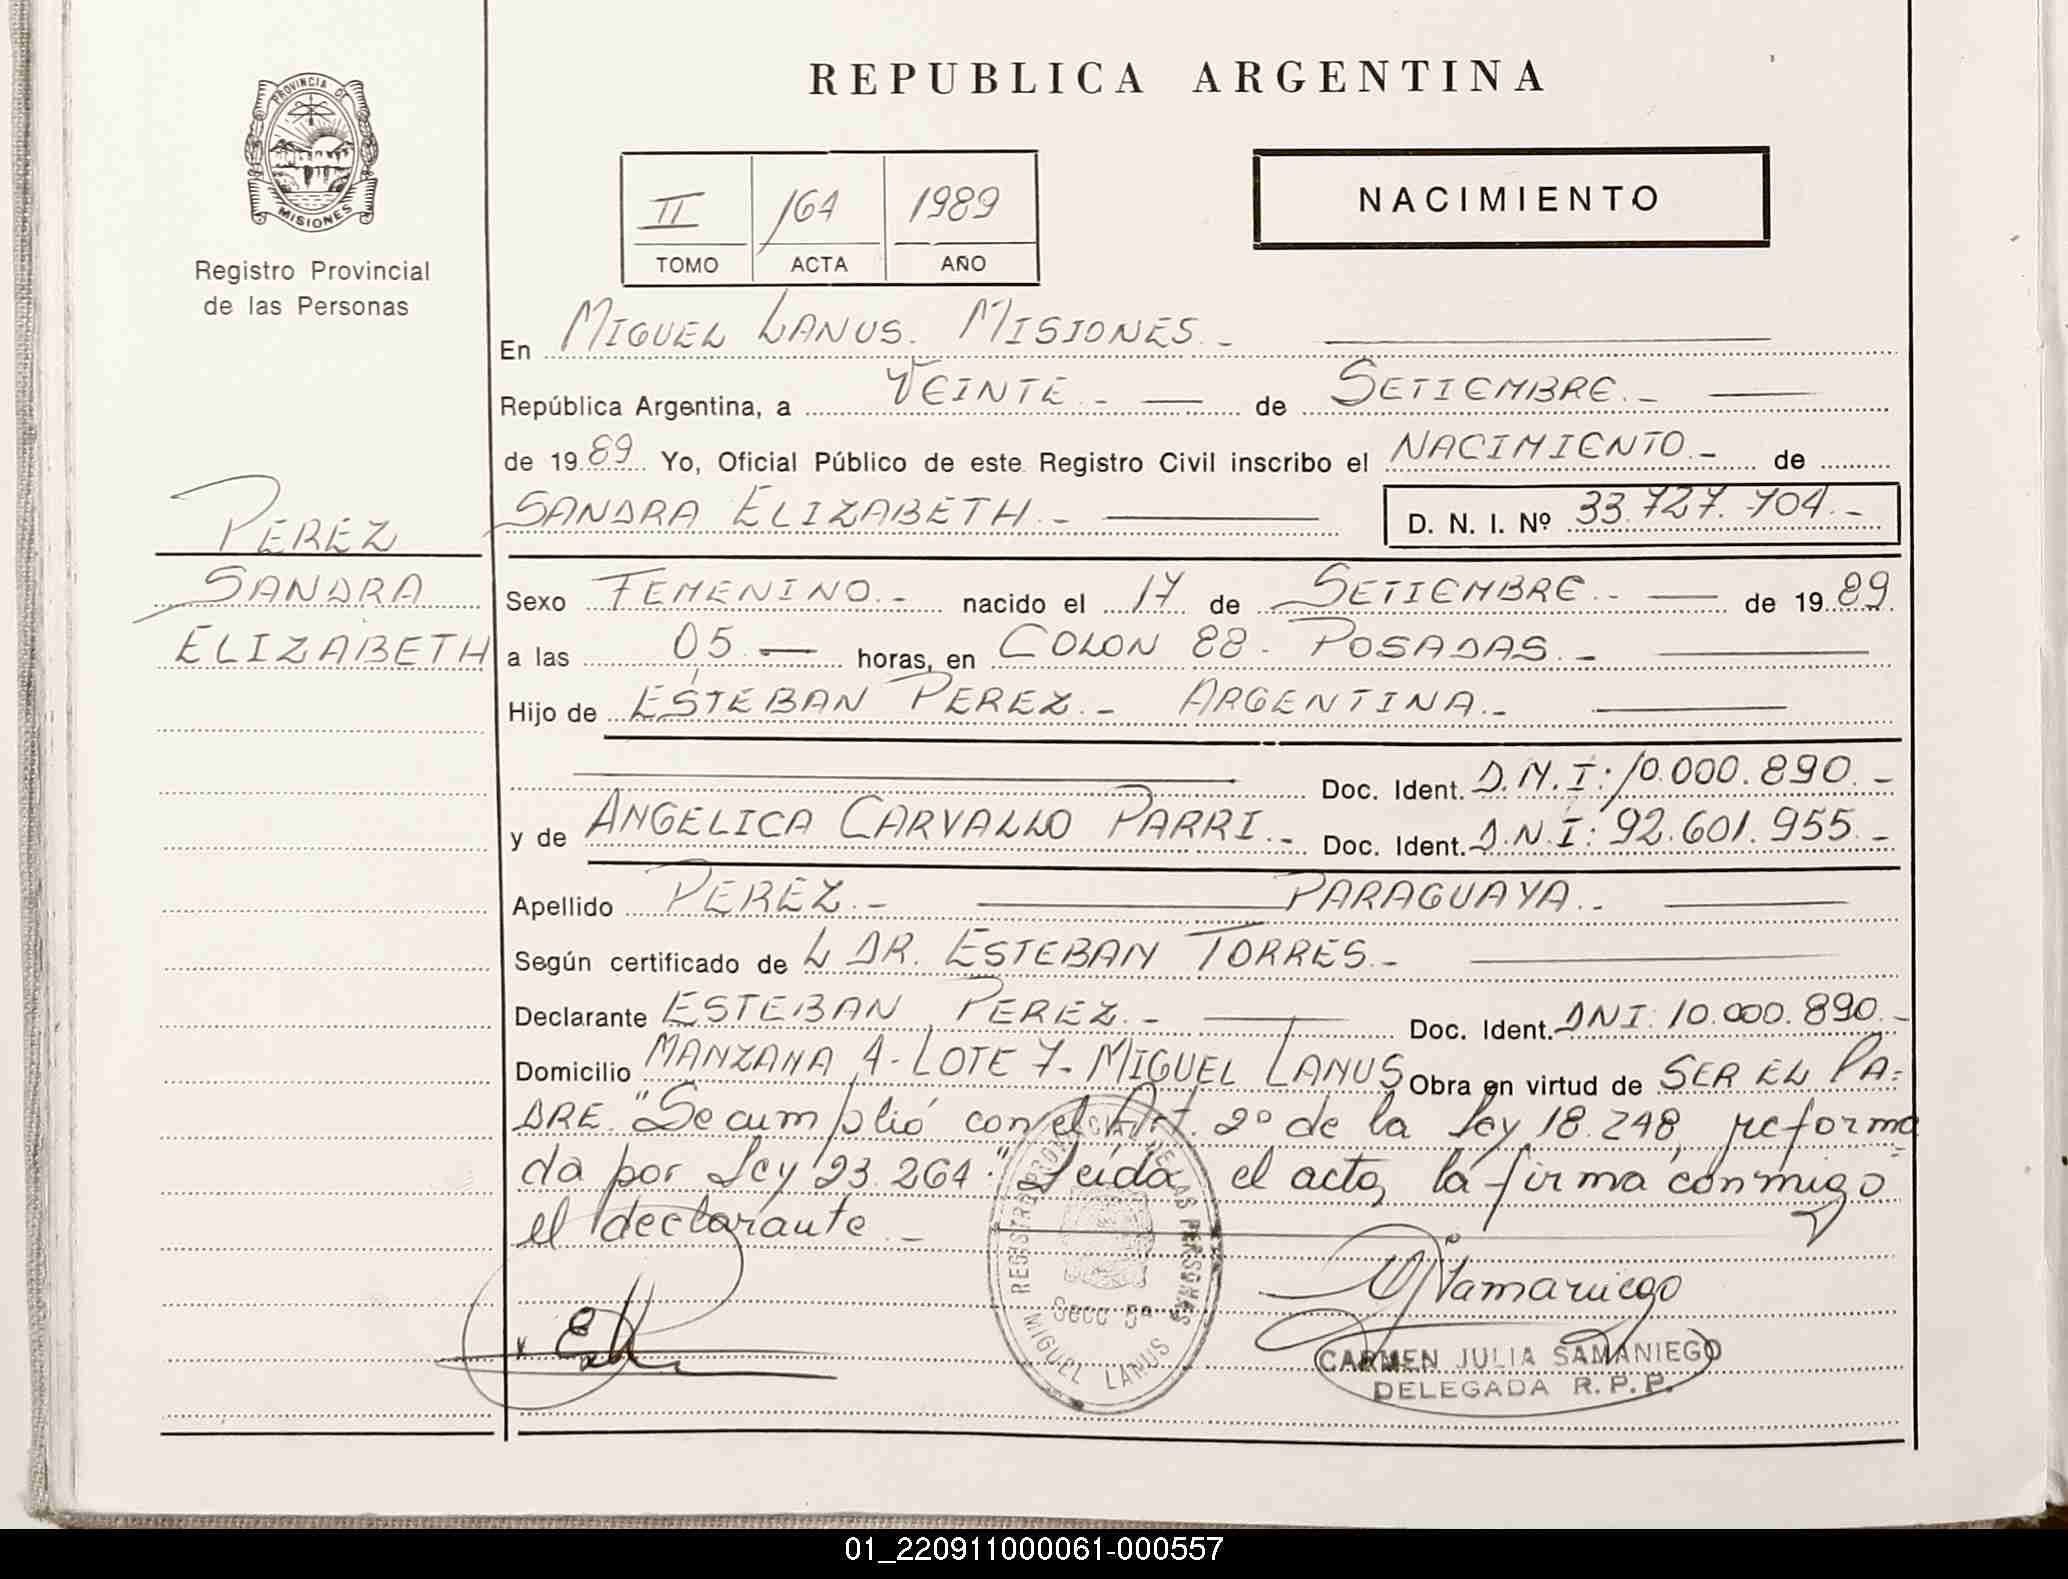 REPUBLICA ARGENTINA
PROVINCIA DE
MISIONES
Registro Provincial
de las Personas
II 164 1989
TOMO ACTA AÑO
NACIMIENTO
En MIGUEL LANUS. MISIONES.-
República Argentina, a VEINTE.- de SETIEMBRE.-
de 1989 Yo, Oficial Público de este Registro Civil inscribo el NACIMIENTO.- de
SANDRA ELIZABETH.- D. N. I. Nº 33.727.704.-
PEREZ
SANDRA
ELIZABETH
Sexo FEMENINO.- nacido el 17 de SETIEMBRE.- de 1989
a las 05.- horas, en COLON 88. POSADAS.-
Hijo de ESTEBAN PEREZ.- ARGENTINA.-
Doc. Ident. D.N.I: 10.000.890.-
y de ANGELICA CARVALLO PARRI.- Doc. Ident. D.N.I: 92.601.955.-
Apellido PEREZ.- PARAGUAYA.-
Según certificado de L DR. ESTEBAN TORRES.-
Declarante ESTEBAN PEREZ.- Doc. Ident. DNI: 10.000.890.-
Domicilio MANZANA 4-LOTE 7-MIGUEL LANUS Obra en virtud de SER EL PA-
DRE. "Se cumplió con el Art. 2º de la Ley 18.248, reforma
da por Ley 23.264." Leída el acta, la firma conmigo
el declarante.-
REGISTRO PROVINCIAL DE LAS PERSONAS
Secc 5ª
MIGUEL LANUS
CARMEN JULIA SAMANIEGO
DELEGADA R.P.P.
01_220911000061-000557